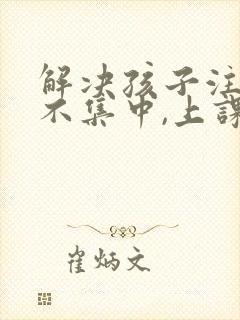 解决孩子注
不集中,上课
崔炳文